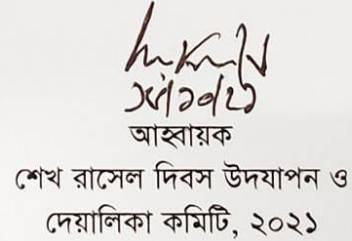 ১৮/১০/২১
আহ্বায়ক
শেখ রাসেল দিবস উদযাপন ও
দেয়ালিকা কমিটি, ২০২১